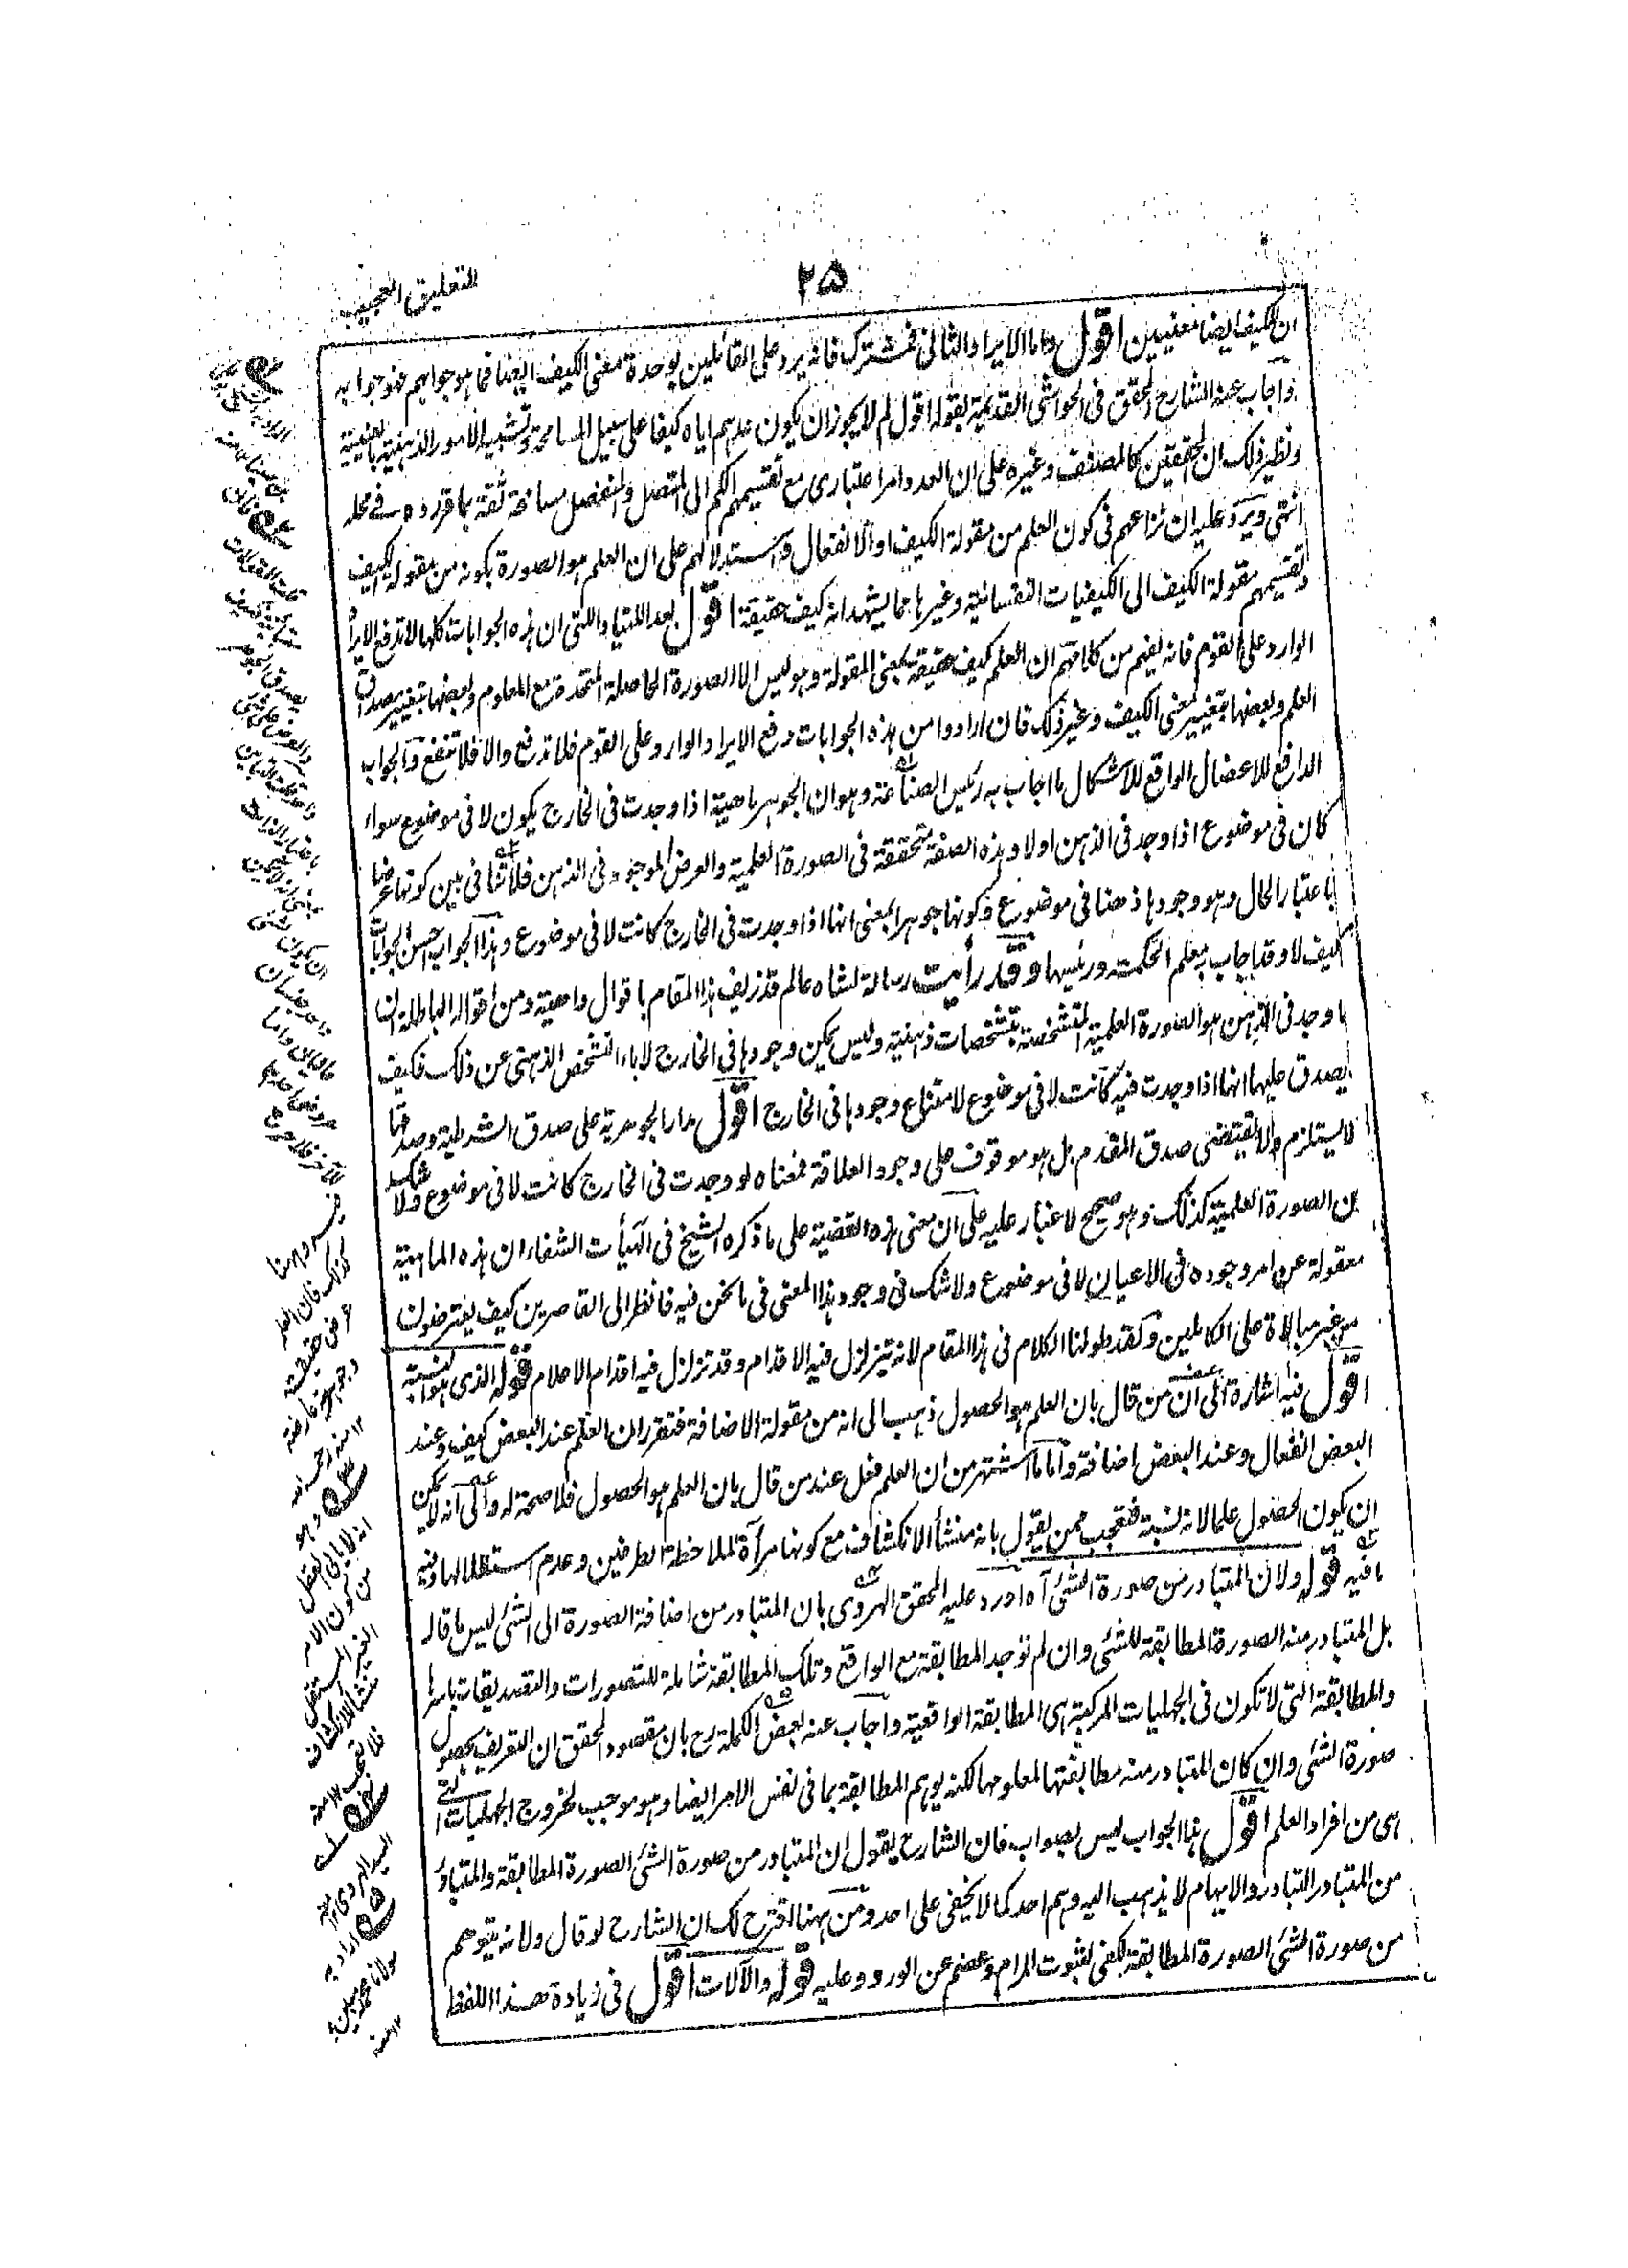 ٢٥
التعليق العجيب
ان للكيف ايضا معنيين اقول واما الايراد الثانى فمشترك فانه يرد على القائلين بوحدة معنى الكيف ايضا فما هو جوابهم فهو جوابه
واجاب عنه الشارح المحقق فى الحواشى القديمة بقوله اقول لم لا يجوز ان يكون عدهم اياه كيفا على سبيل المسامحة وتشبيه الامور الذهنية بالعينية
ونظير ذلك ان المحققين كالمصنف وغيره على ان العدد امر اعتبارى مع تقسيمهم الكم الى المتصل والمنفصل مسامحة ثقة بما قرروه فى محله
انتهى ويرد عليه ان نزاعهم فى كون العلم من مقولة الكيف او الانفعال واستدلالهم على ان العلم هو الصورة بكونه من مقولة الكيف
وتقسيمهم مقولة الكيف الى الكيفيات النفسانية وغيرها مما يشهد انه كيف حقيقة اقول بعد اللتيا والتى ان هذه الجوابات كلها لا تدفع الايراد
الوارد على القوم فانه يفهم من كلماتهم ان العلم كيف حقيقة بمعنى المقولة وهو ليس الا الصورة الحاصلة المتحدة مع المعلوم وبعضها بتغيير مصداق
العلم وبعضها بتغيير معنى الكيف وغير ذلك فان ارادوا من هذه الجوابات دفع الايراد الوارد على القوم فلا تدفع والا فلا تنفع والجواب
الدافع للاعضال الواقع للاشكال ما اجاب به رئيس الصناعة وهو ان الجوهر ماهية اذا وجدت فى الخارج يكون لا فى موضوع سواء
كان فى موضوع اذا وجد فى الذهن اولا وهذه الصفة متحققة فى الصورة العلمية والعرض الموجود فى الذهن فلا تنافى بين كونها عرضا
باعتبار الحال وهو وجودها ذهنا فى موضوع وكونها جوهرا بمعنى انها اذا وجدت فى الخارج كانت لا فى موضوع وهذا الجواب احسن الجوابات
كيف لا وقد اجاب به معلم الحكمة ورئيسها وقد رأيت رسالة لشاه عالم قد زيف هذا المقام باقوال واهية ومن اقواله الباطلة ان
ما وجد فى الذهن هو الصورة العلمية المتشخصة بتشخصات ذهنية وليس يمكن وجودها فى الخارج لاباء التشخص الذهنى عن ذلك فكيف
يصدق عليها انها اذا وجدت فيه كانت لا فى موضوع لامتناع وجودها فى الخارج اقول مدار الجوهرية على صدق الشرطية وصدقها
لا يستلزم ولا يقتضى صدق المقدم بل هو موقوف على وجود العلاقة فمعناه لو وجدت فى الخارج كانت لا فى موضوع ولا شك
ان الصورة العلمية كذلك وهو صحيح لا غبار عليه على ان معنى هذه القضية على ما ذكره الشيخ فى الهيأت الشفاء ان هذه الماهية
معقولة عن امر وجوده فى الاعيان لا فى موضوع ولا شك فى وجود هذا المعنى فى ما نحن فيه فانظر الى القاصرين كيف يعترضون
من غير مبالاة على الكاملين ولقد طولنا الكلام فى هذا المقام لانه تتزلزل فيه الاقدام وقد تزلزل فيه اقدام الاعلام قوله الذى هو النسبة
اقول فيه اشارة الى ان من قال بان العلم هو الحصول ذهب الى انه من مقولة الاضافة فتقرر ان العلم عند البعض كيف وعند
البعض انفعال وعند البعض اضافة واما ما اشتهر من ان العلم فعل عند من قال بان العلم هو الحصول فلا صحة له والى انه لا يمكن
ان يكون الحصول علما لانه نسبة فتعجب ممن يقول بانه منشأ الانكشاف مع كونها مرآة لملاحظة الطرفين وعدم استقلالها وفيه
ما فيه قوله ولان المتبادر من صورة الشئ آه اورد عليه المحقق الهروى بان المتبادر من اضافة الصورة الى الشئ ليس ما قاله
بل المتبادر منه الصورة المطابقة للشئ وان لم توجد المطابقة مع الواقع وتلك المطابقة شاملة للتصورات والتصديقات باسرها
والمطابقة التى لا تكون فى الجهليات المركبة هى المطابقة الواقعية واجاب عنه بعض الكملة رح بان مقصود المحقق ان التعريف بحصول
صورة الشئ وان كان المتبادر منه مطابقتها لمعلومها لكنه يوهم المطابقة بما فى نفس الامر ايضا وهو موجب لخروج الجهليات التى
هى من افراد العلم اقول هذا الجواب ليس بصواب فان الشارح يقول ان المتبادر من صورة الشئ الصورة المطابقة والمتبادر
من المتبادر التبادر والايهام لا يذهب اليه وهم احد كما لا يخفى على احد ومن ههنا اقترح لك ان الشارح لو قال ولانه يتوهم
من صورة الشئ الصورة المطابقة لكفى لثبوت المرام وعصم عن الورود عليه قوله والآلات اقول فى زيادة هذا اللفظ
كذلك فان العلم
عرض حقيقة
١٢ منه رحمه الله
وهو
انه لا يأبى العقل
من كون الامر
الغير المستقل
منشأ الانكشاف
فلا تعجب ١٢ منه
السيد الهروى ١٢ منه
اراد به
مولانا محمد مبين
١٢ منه